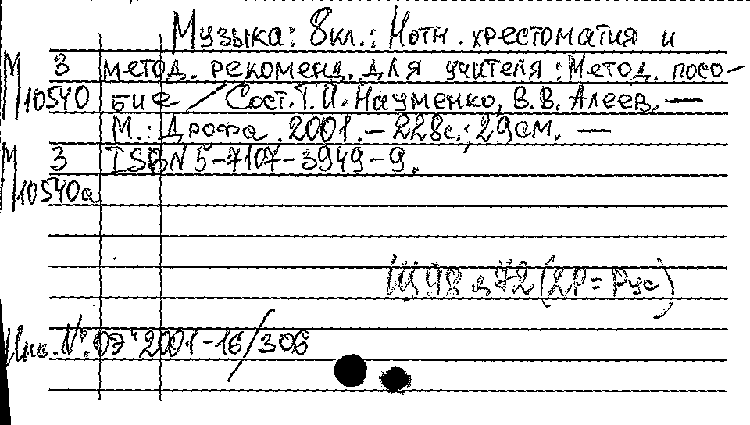 Музыка: 8кл.: Нотн. хрестоматия и
М 3 метод. рекоменд. для учителя: Метод. посо-
10540 бие / Сост. Т.И. Науменко, В.В. Алеев. —
М.: Дрофа. 2001. — 228с.; 29см. —
М 3 ISBN 5-7107-3949-9.
10540а
Щ98я72(2Р=Рус)
2001-16/306